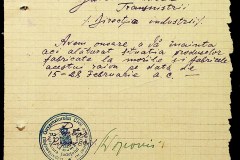 Transnistrii
Direcția industrii.
Avem onoare a vă înainta
aci alăturat situația produselor
fabricate la morile și fabricele
acestui raion pe data de
15-28 Februarie a.c. —